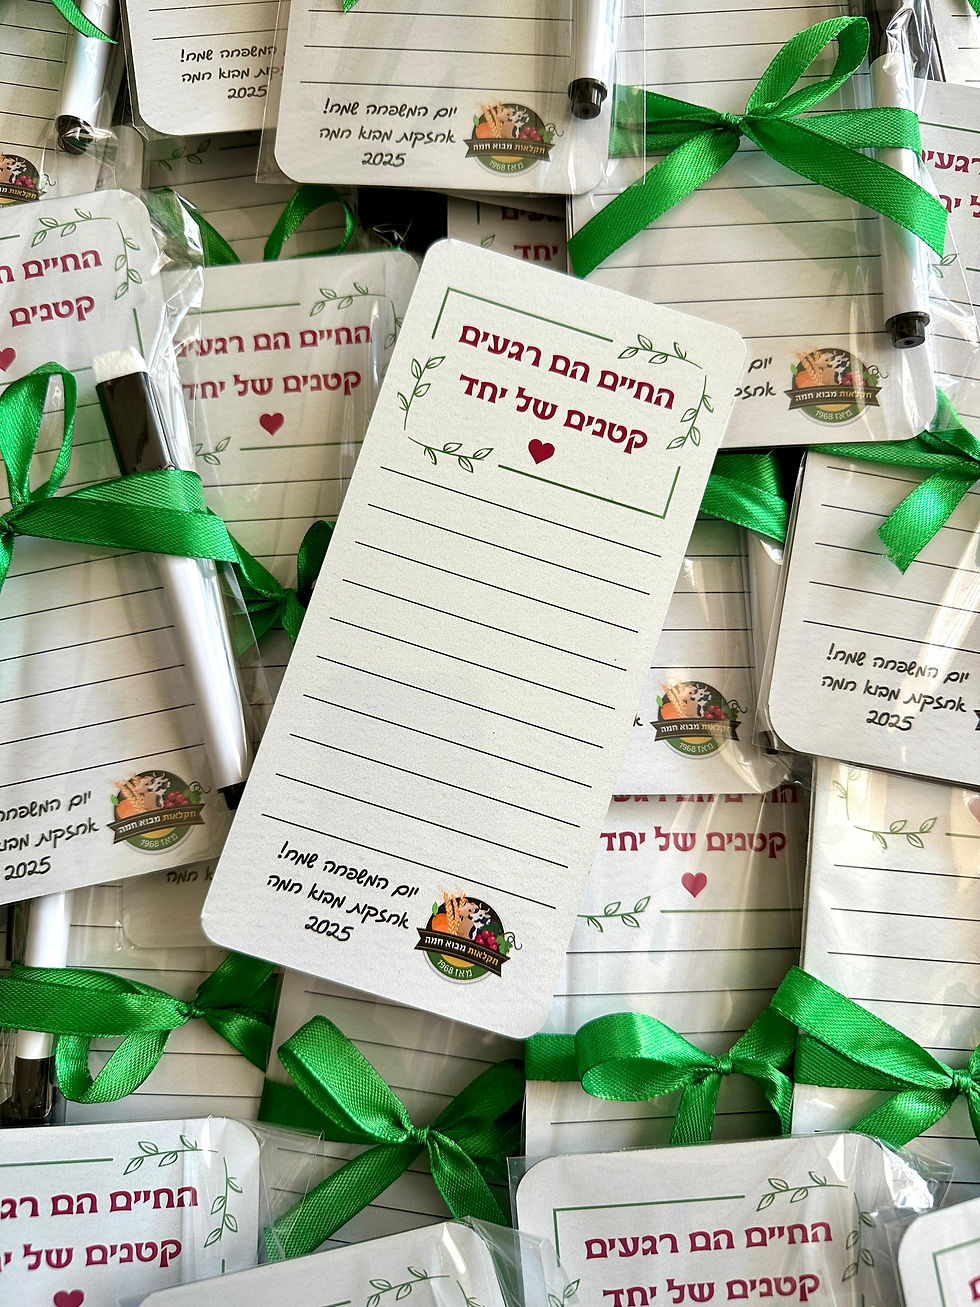 יום המשפחה שמח!
אחזקות מבוא חמה
2025
חקלאות מבוא חמה
מאז 1968
מבוא חמה
2025
יחד
החיים הם
קטנים
החיים הם רגעים
קטנים של יחד
החיים הם רגעים
קטנים של יחד
יום המשפחה שמח!
אחזקות מבוא חמה
2025
חקלאות מבוא חמה
מאז 1968
יום
חקלאות מבוא חמה
מאז 1968
יום המשפחה שמח!
אחזקות מבוא חמה
2025
חקלאות מבוא חמה
מאז 1968
יום המשפחה
אחזקות מבוא חמה
2025
חקלאות מבוא חמה
מאז 1968
החיים הם רגעים
קטנים של יחד
החיים הם
קטנים של
החיים הם רגעים
קטנים של יחד